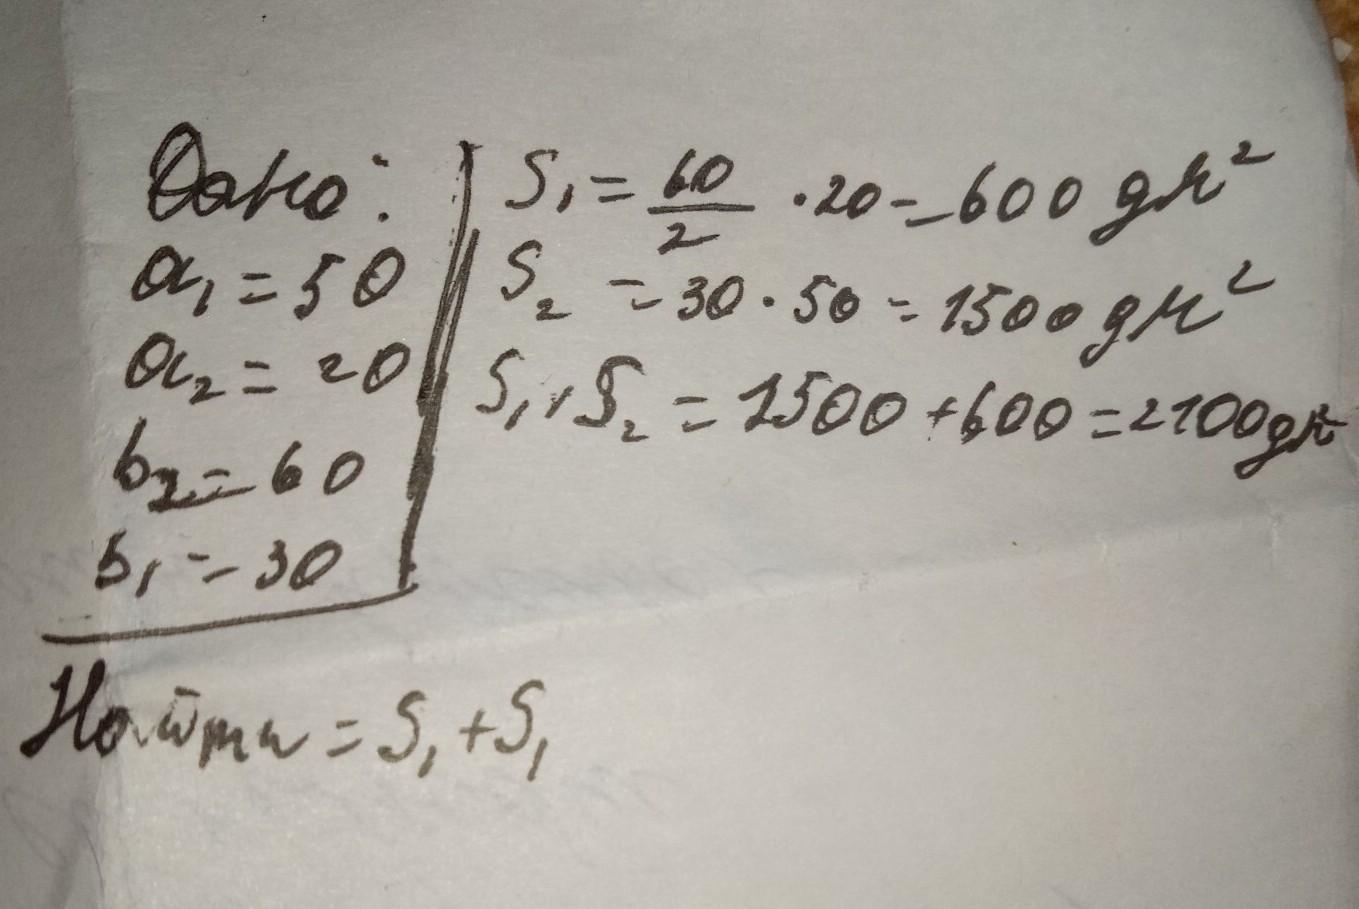 Дано:
a₁ = 50
a₂ = 20
b₂ = 60
b₁ = 30
Найти = S₁ + S₁
S₁ = 60/2 · 20 = 600 дм²
S₂ = 30 · 50 = 1500 дм²
S₁ + S₂ = 1500 + 600 = 2100 дм²